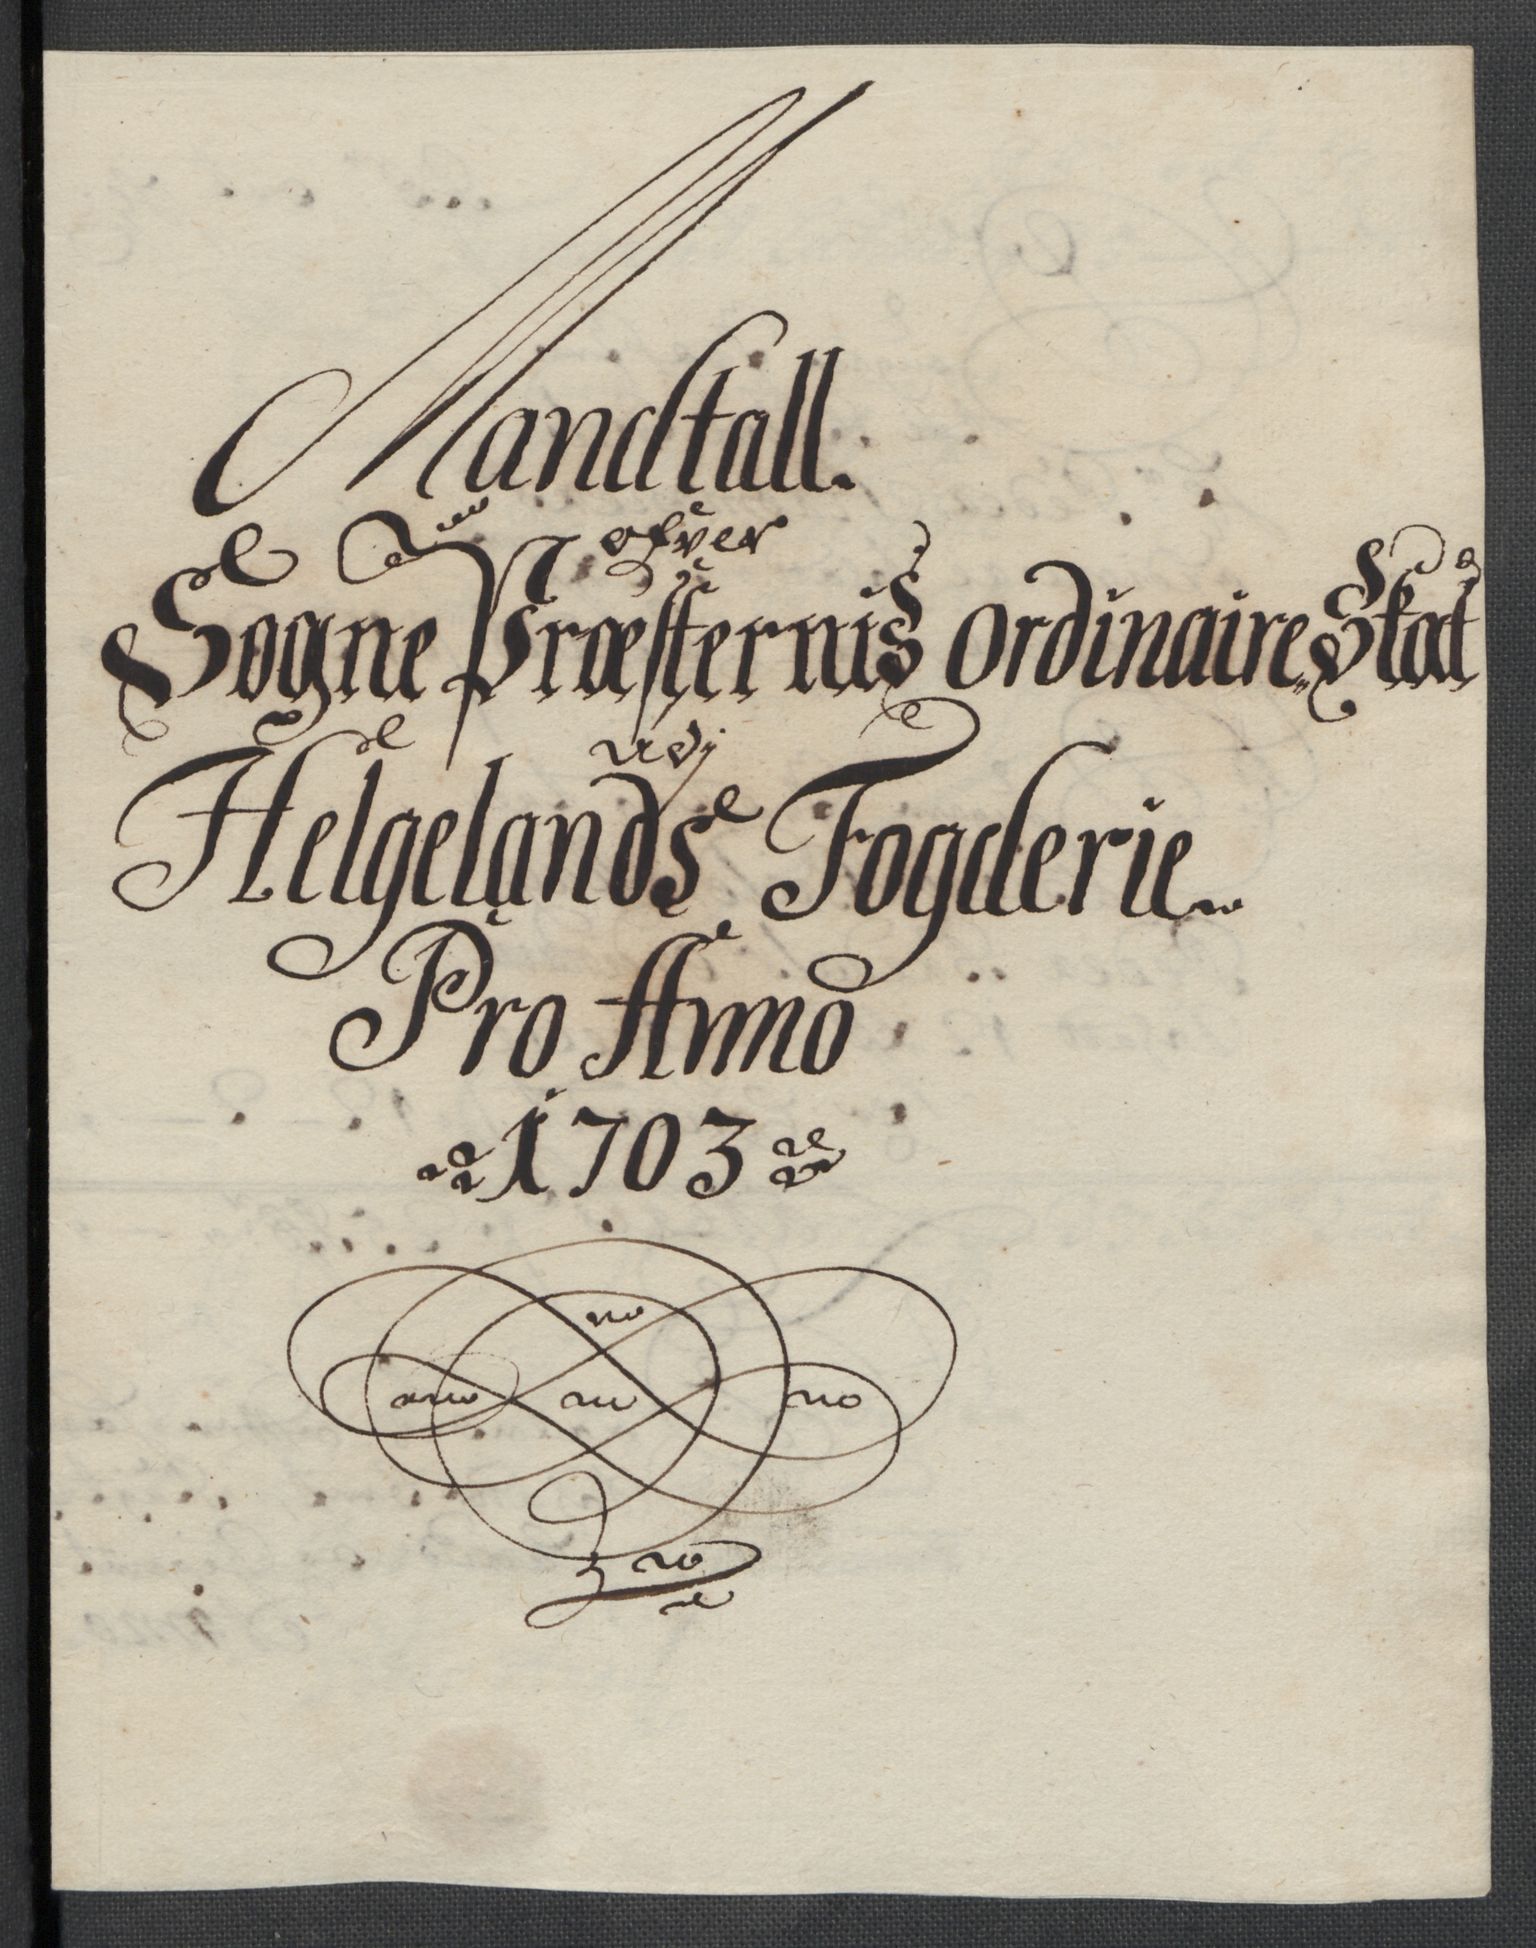 Mandtall.
ofver
Sogne Præsternis ordinaire Skat
udj
Helgelands Fogderie
Pro Anno
1703